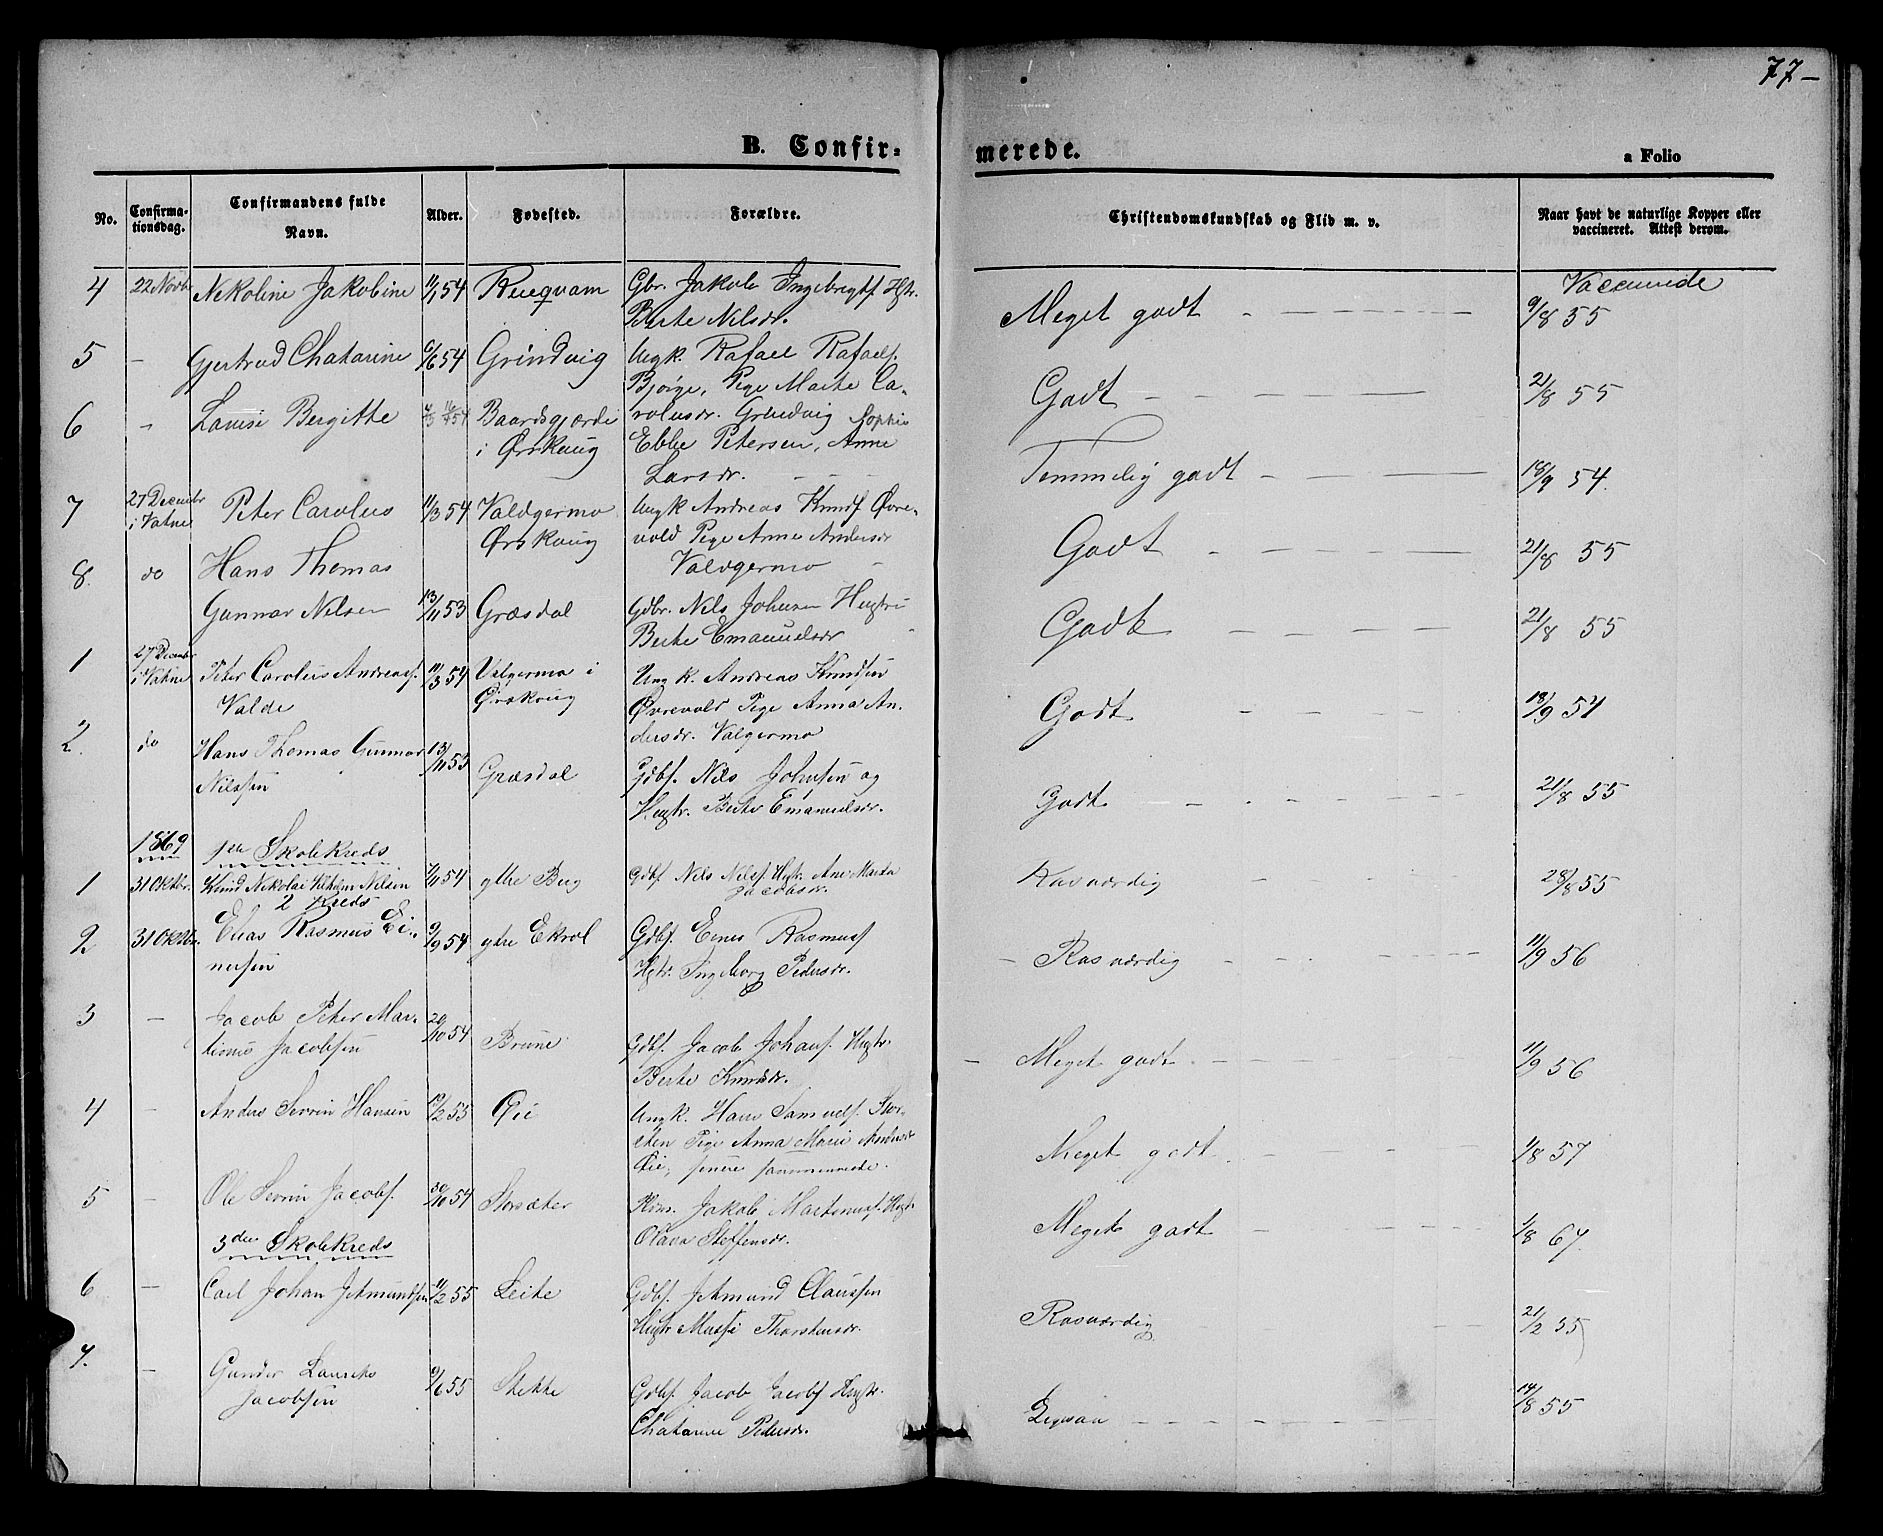 77-
B. Confir-
merede.
a Folio
No.
Confirma-
tionsdag.
Confirmandens fulde
Navn.
Alder.
Fødested.
Forældre.
Christendomskundskab og Flid m. v.
Naar havt de naturlige Kopper eller
vaccineret. Attest derom.
4 22 Novbr Nikoline Jakobine 11/1 54 Gbr. Jakob Ingebrigtss. Hstr.
Berte Nilsdr.
Meget godt
9/8 55
5 - Gjertrud Chatarine 6/6 54 Grindvig Ungk. Rafael Rafaels.
Bjørge, Pige Marte Ca-
rolusdr. Grindvig
Godt
21/8 55
6 - Lauise Bergitte Baardsgjærde
i Ørskoug
Sophie
Ebbe Petersen, Anne
Larsdr.
Temmelig godt
18/9 54.
7 27 Decembr
i Vatne
Peter Carolus 11/3 54 Valdgermo
Ørskoug
Ungk Andreas Knuds. Øvre-
vold Pige Anne Andersdr
Valdgermo
Godt
21/8 55
8. do Hans Thomas
Gunnar Nilsen 13/11 53 Græsdal Gdbr. Nils Johnsen Hustru
Berte Emanuelsdr
Godt
21/8 55
1 27 Decembr
i Vatne
Peter Carolus Andreass.
Valde
11/3 54 Valgermo i
Ørskoug
Ung k. Andreas Knudsen
Øvrevold Pige Anna An-
dersdr. Valgermo
Godt
18/9 54
2. do Hans Thomas Gunnar
Nilssen
13/11 53 Græsdal Gdbs. Nils Johnsen og
Hustr. Berte Emanuelsdr.
Godt
21/8 55
1869 1ste Skolekreds
1 31 Oktbr. Knud Nikolai Vilhelm Nilsen 7/11 54 ytre Bug Gdbs Nils Nilss Hustr. Ane Marta
Jacobsdr.
Rosværdig
28/8 55
2 Kreds
2 31 Oktbr. Elias Rasmus Ei-
nersen
9/9 54 ytre Ekrol Gdbs. Einer Rasmuss
Hstr. Ingeborg Pedersdr.
Rosværdig
11/9 56
3 - Jacob Peter Mar-
tinus Jacobsen
29/10 54 Brune Gdbs. Jacob Johans. Hustr.
Berte Knudsdr.
Meget godt
11/9 56
4 - Anders Severin Hansen 19/2 55 Øie Ungk. Hans Samuels. Stor-
Pige Anna Marie Andersdr
Øie, senere
Meget godt
1/8 57
5 - Ole Severin Jacobs. 30/10 54 Storsæter Jakob Martinuss. Hustr
Olava Steffensdr.
Meget godt
1/8 67.
3die Skolekreds
6 - Carl Johan Jetmundsen 11/2 55 Leite Gdbs. Jetmund Claussen
Hustr Massi Thorstensdr.
Rosværdig
21/2 55
7. - Gunder Lauritz
Jacobsen
9/6 55 Stette Gdbs. Jacob Jacobs Hustr.
Chatarine Pedersdr.
Ligesaa
14/8 55